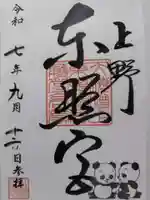 上野
東照宮
令和七年九月十六日参拝